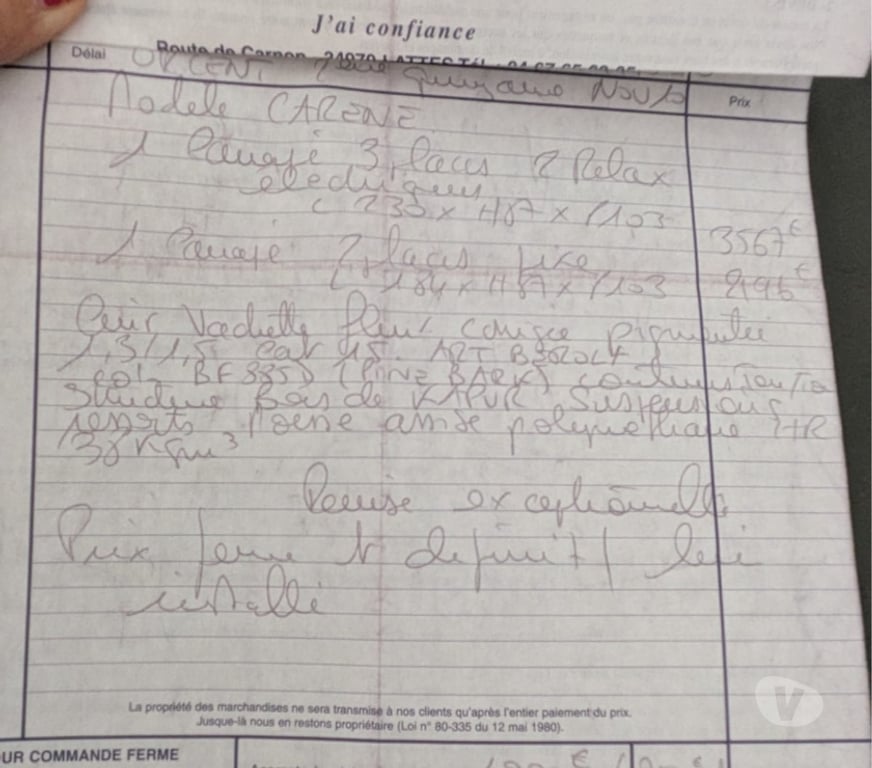 J'ai confiance
Route de Carnon - 34970 LATTES Tél.
Délai
Prix
Modèle CARENE
1 Canapé 3 places 2 Relax
électriques
L 235 x H87 x P103 3567€
1 Canapé 2 places fixe
L 184 x H87 x P103
Cuir Vachette fleur corrigée pigmentée
1,3/1,5 cat 15. ART B3620L4
col. BF885D (PINE BARK)
Structure Bois de KAPUR Suspensions
ressorts Mousse assise polyuréthane HR
38 Kg/m³
Remise exceptionnelle
Prix ferme et définitif
installé
La propriété des marchandises ne sera transmise à nos clients qu'après l'entier paiement du prix.
Jusque-là nous en restons propriétaire (Loi n° 80-335 du 12 mai 1980).
UR COMMANDE FERME
V